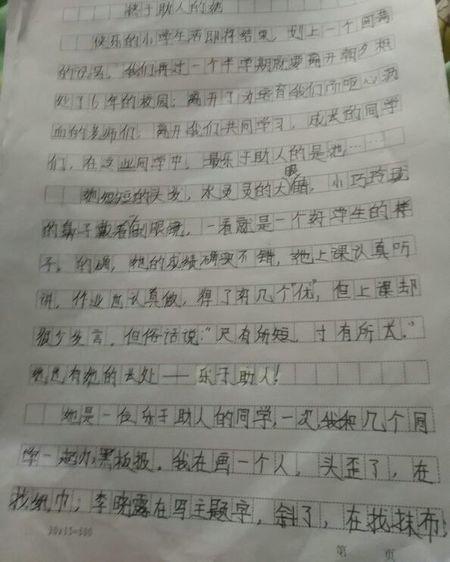 快于助人的她
快乐的小学生活即将结束，划上一个圆满
的句号，我们再过一个半学期就要离开朝夕相
处了6年的校园；离开了为培育我们而呕心沥
血的老师们；离开我们共同学习，成长的同学
们，在这些同学中，最乐于助人的是她……
她短短的头发，水灵灵的大眼睛，小巧玲珑
的鼻子戴着副眼镜，一看就是一个好学生的样
子。的确，她的成绩确实不错，她上课认真听
讲，作业也认真做，得了有几个“优”，但上课却
很少发言。但俗话说：“尺有所短，寸有所长。”
她也有她的长处——乐于助人！
她是一位乐于助人的同学，一次，我和几个同
学一起办黑板报。我在画一个人，头歪了，在
找纸巾；李晓露在写主题字，斜了，在找抹布；
20×15=300
第 页